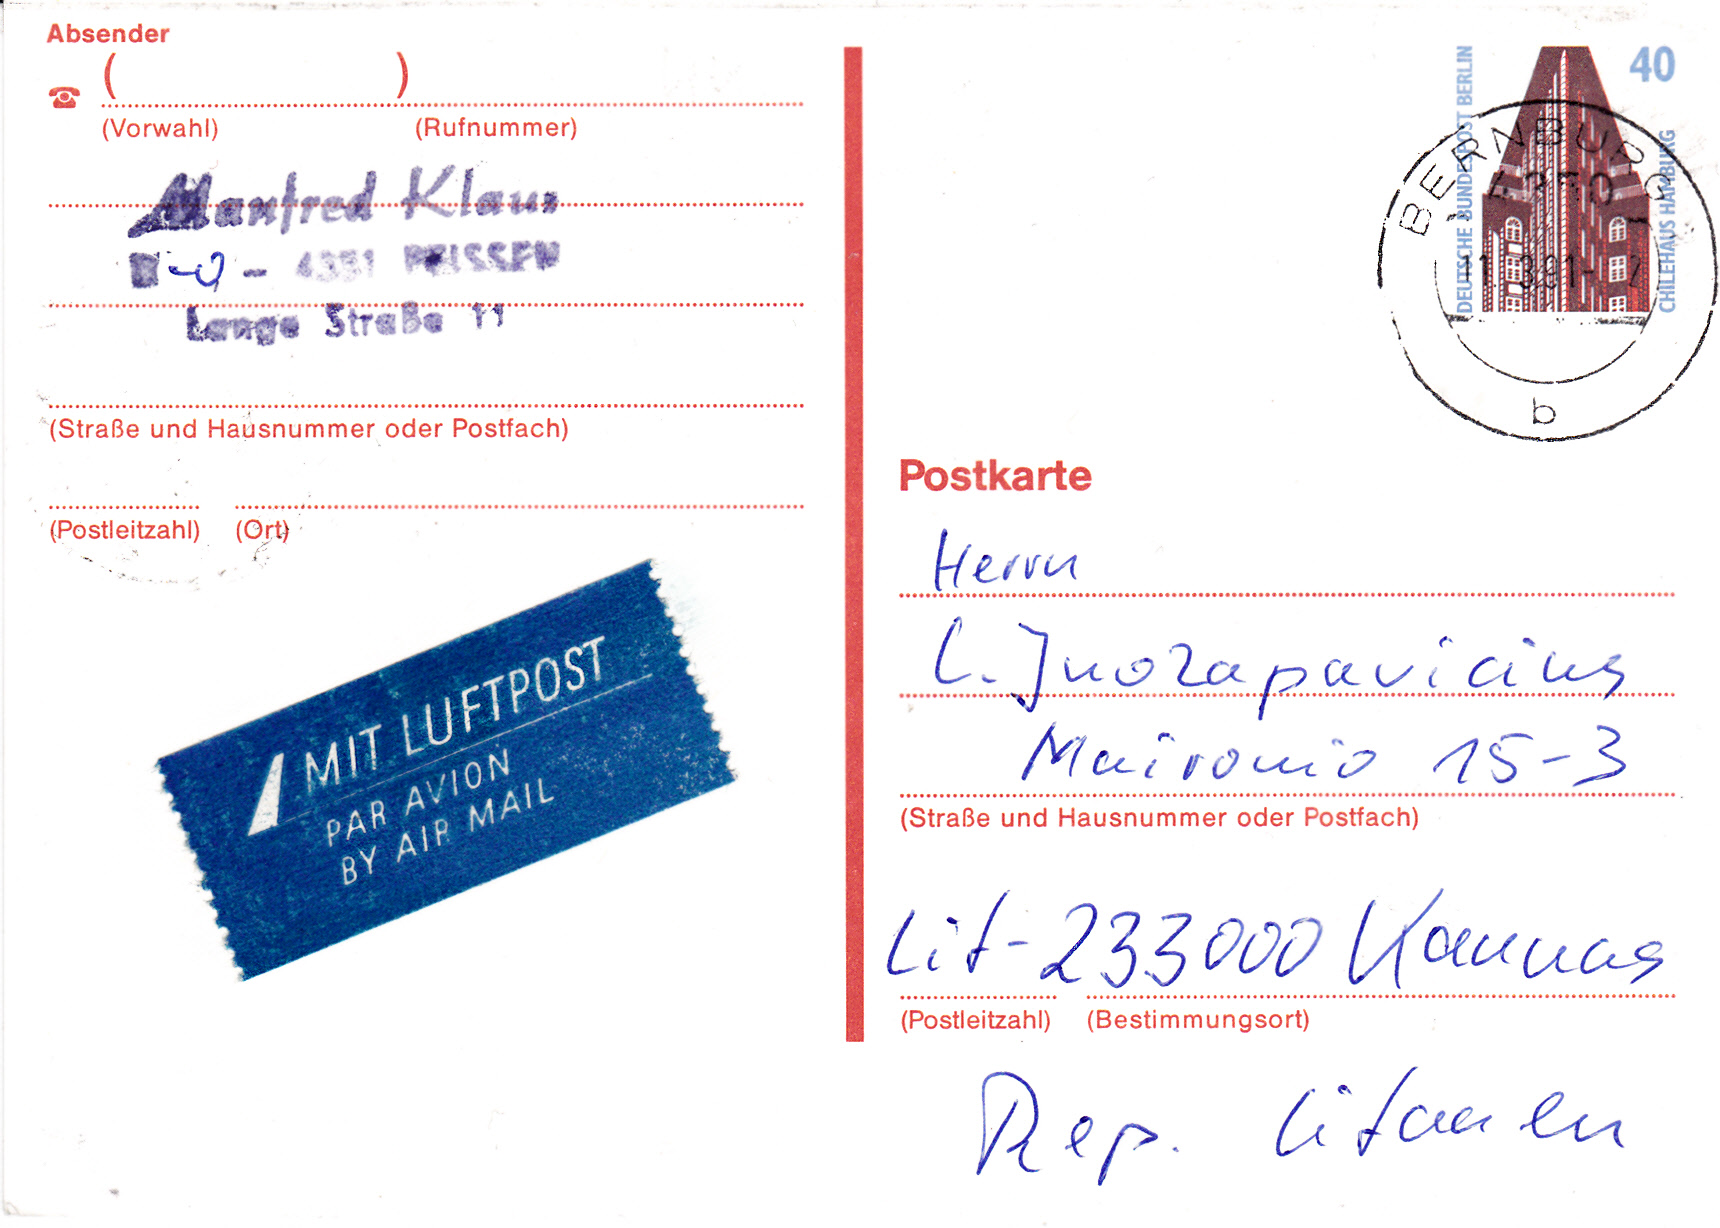 Absender
( )
(Vorwahl) (Rufnummer)
Manfred Klaus
-O- 4351 PEISSEN
Lange Straße 11
(Straße und Hausnummer oder Postfach)
(Postleitzahl) (Ort)
MIT LUFTPOST
PAR AVION
BY AIR MAIL
DEUTSCHE BUNDESPOST BERLIN
40
CHILEHAUS HAMBURG
BERNBURG
4350
b
Postkarte
Herrn
L. Juozapavicius
Maironio 15-3
(Straße und Hausnummer oder Postfach)
Lit-233000 Kaunas
(Postleitzahl) (Bestimmungsort)
Rep. Litauen